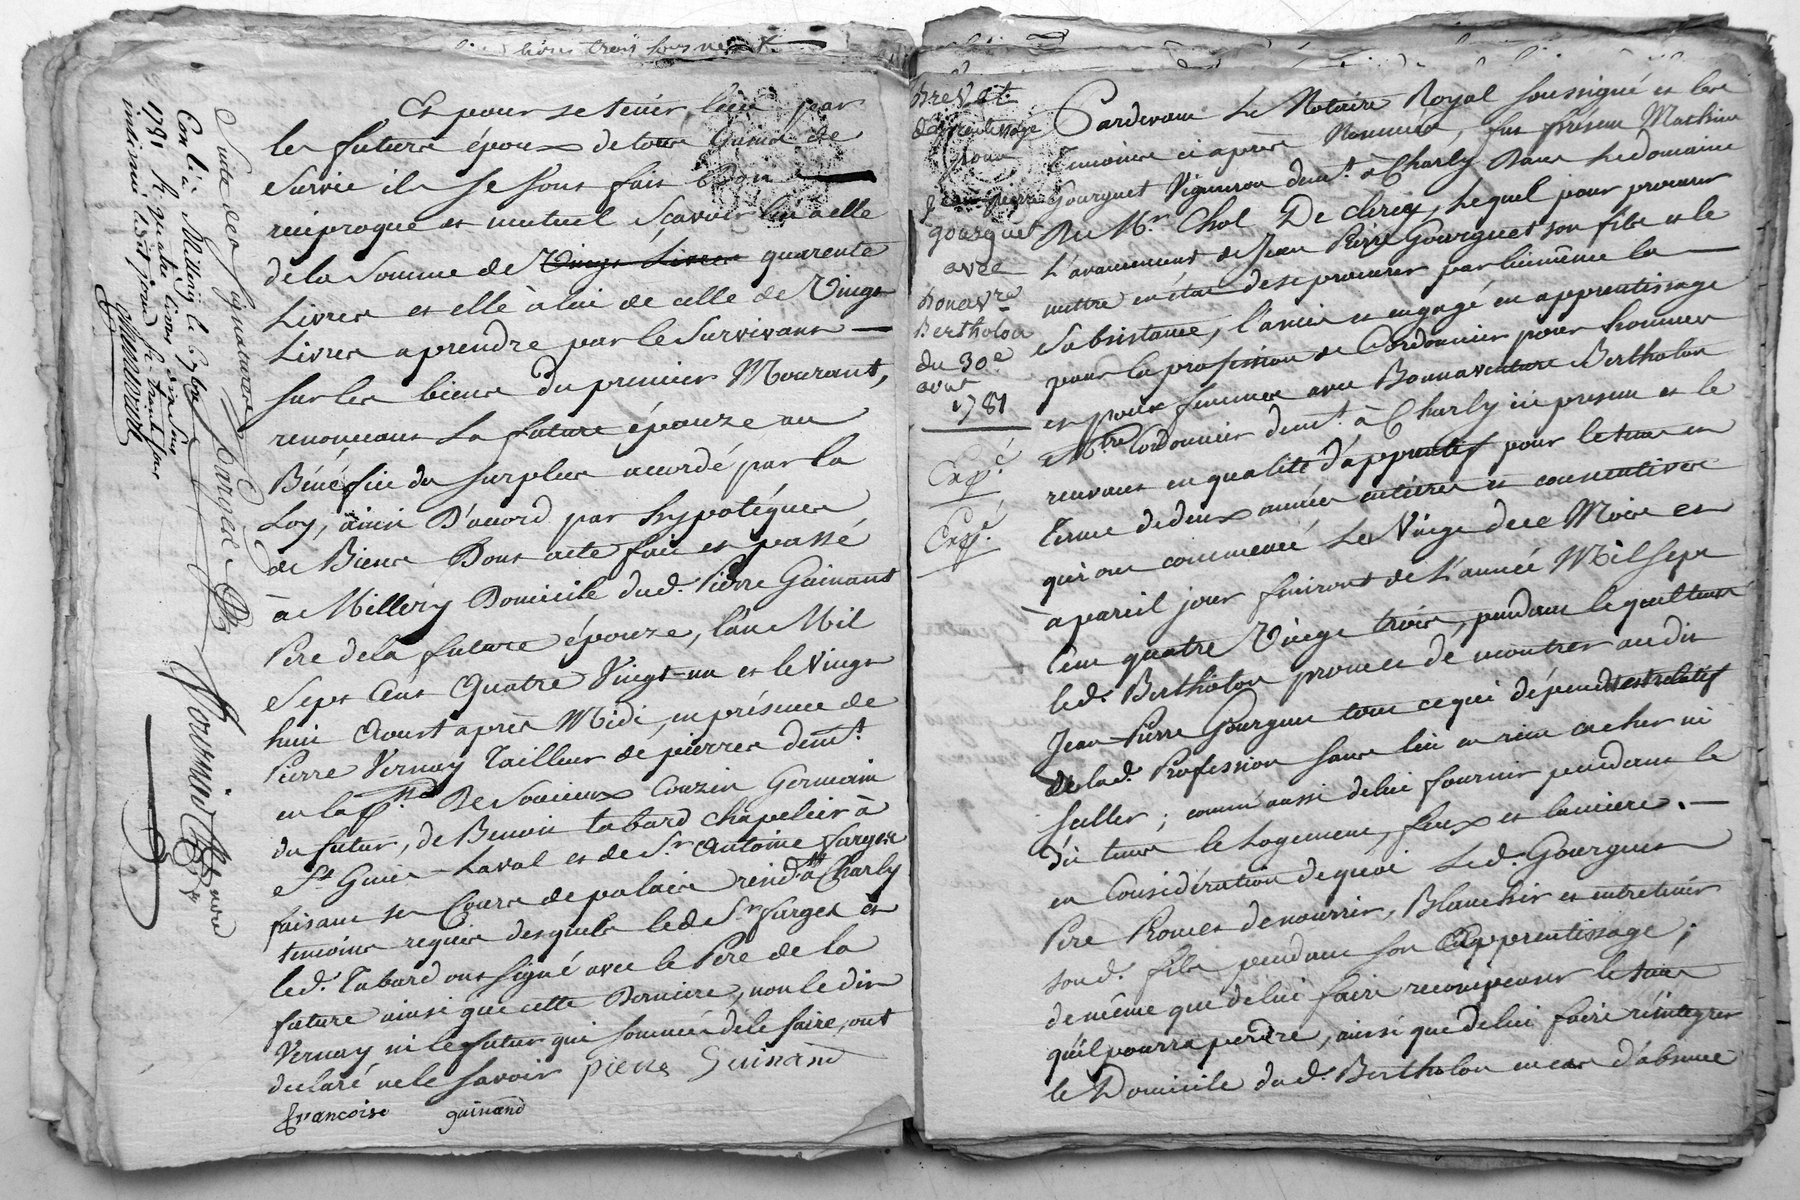 livres trois sous
Et pour se tenir lieu par
les futurs époux de tous Gains de
Survie ils se sont fait Don
réciproque et mutuel Scavoir lui a elle
de la Somme de Vingt Livres quarente
Livres et elle à lui de celle de Vingt
Livres aprendre par le Survivant
sur les biens du premier Mourant,
renonceant La future épouze au
Bénéfice du surplus accordé par la
Loy, ainsi D'accord par hypotéques
de Biens Dont acte fait et passé
à Millery Domicile dud. Pierre Guinand
Pere de la future épouze, l'an Mil
Sept Cent Quatre Vingt-un et le Vingt
huit Aoust après Midi, en présence de
Pierre Vernay Tailleur de pierres demt.
en la psse. De Soucieux Couzin Germain
du futur, de Benoit tabard chapelier à
St Genis-Laval et de Sr. Antoine Farges
faisant ses Cours de palais résidt. à Charly
temoins requis desquels led. Sr. farges et
led. Tabard ont signé avec le Pere de la
future ainsi que cette Derniere, non ledit
Vernay ni le futur qui sommés de le faire, ont
declaré ne le savoir pierre Guinand
francoise guinand
Suitte des signatures Farges
Conlé à Millery le 6 7bre
1781 R. quatre livres dix sous
insinué ledit jour R. trente sous
Brevet
d'aprentissage
pour
Jean pierre
gourguet
avec
bonavre
Bertholon
du 30e
aout
1781
Expé.
Expé.
Pardevant Le Notaire Royal soussigné et les
temoins ci apres Nommés, fut présent Mathieu
Gourguet Vigneron demt. à Charly Dans le domaine
De Mr. Chol De clerey, Lequel pour procurer
L'avancement de Jean Pierre Gourguet son fils et le
mettre en état de se procurer par luimême la
Subsistance, l'a mis et engagé en apprentissage
pour la profession de Cordonnier pour hommes
et pour femmes avec Bonnaventure Bertholon
Mtre Cordonnier demt. à Charly ici présent et le
recevant en qualité d'apprentif pour le tems et
terme de deux années entières et consecutives
qui ont commencé Le Vingt de ce Mois et
à pareil jour finiront de L'année Mil sept
Cent quatre Vingt trois, pendant lequel tems
led. Bertholon promet de montrer audit
Jean-Pierre Gourguet tout ce qui dépend et est relatif
de lad. Profession sans lui en rien cacher ni
seller; comm'aussi de lui fournir pendant le
dit tems le Logement, feux et lumiere.
en Considération de quoi Led. Gourguet
Pere Promet de nourrir, Blanchir et entretenir
sond. fils pendant son apprentissage;
de même que de lui faire recompenser le tems
qu'il pourra perdre, ainsi que de lui faire réintegrer
le Domicile dud. Bertholon en cas d'absence